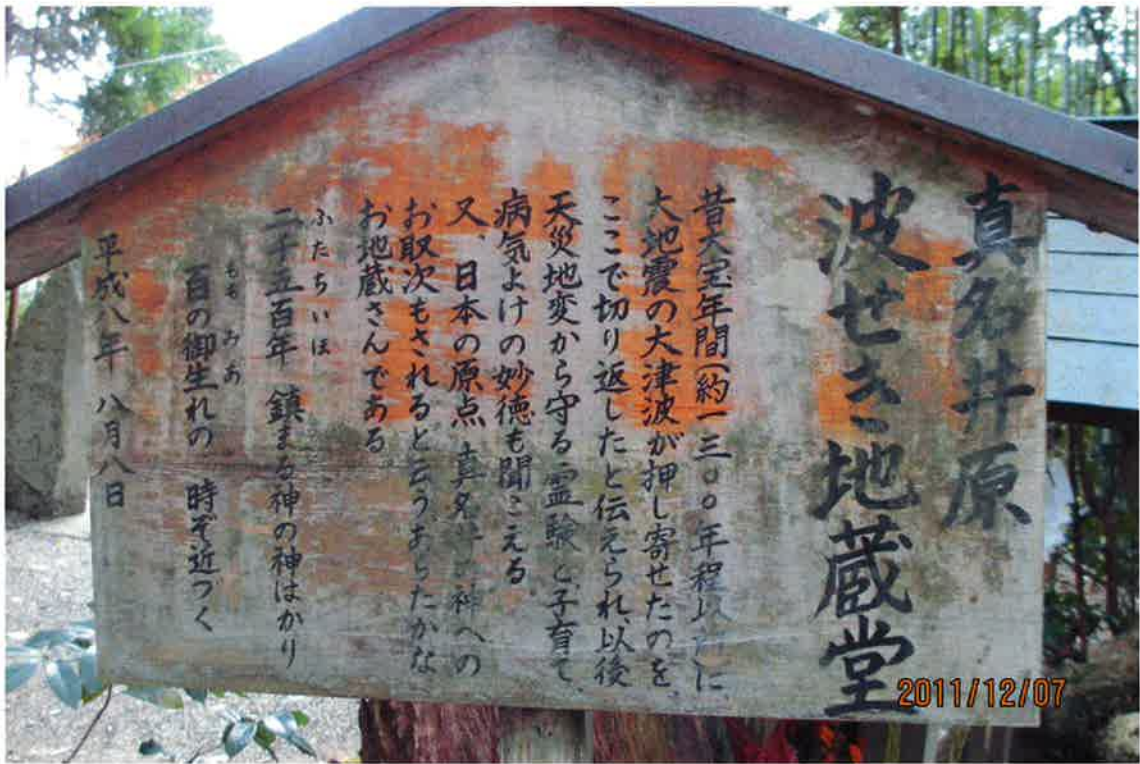 真名井原
波せき地蔵堂
昔大宝年間(約一三〇〇年程以前)に
大地震の大津波が押し寄せたのを、
ここで切り返したと伝えられ、以後
天災地変から守る霊験と、子育て、
病気よけの妙徳も聞こえる
又、日本の原点、真名井神への
お取次もされると云うあらたかな
お地蔵さんである
ふたちいほ
二千五百年 鎮まる神の神はかり
もも みあ
百の御生れの 時ぞ近づく
平成八年 八月八日
2011/12/07